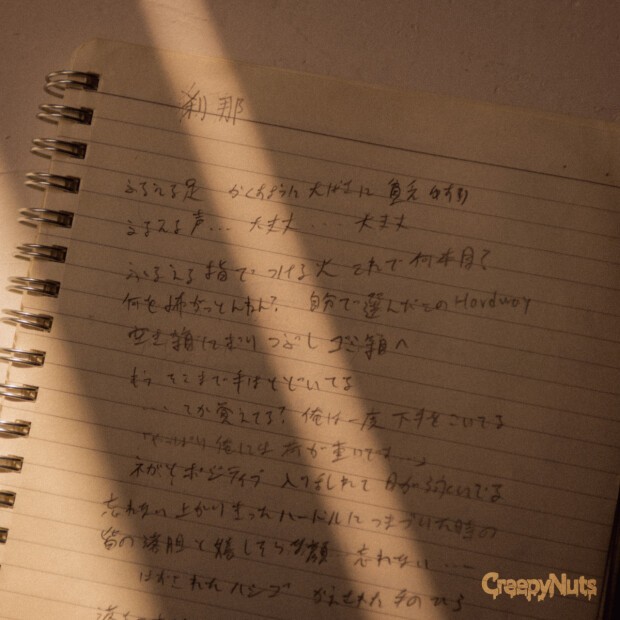 刹那
ふるえる足 かくすように大げさに貧乏ゆすり
ふるえる声… 大丈夫… 大丈夫
ふるえる指でつける火 これで何本目?
何を怖がっとんねん? 自分で選んだこのHardway
空き箱 にぎりつぶし ゴミ箱へ
もう そこまで手はとどいてる
…てか覚えてる? 俺は一度下手をこいてる
「やっぱり俺には荷が重いです…」
ネガとポジティブ 入り乱れて 目が泳いでる
忘れない 上がりきったハードルにつまづいた時の
皆の落胆と嬉しそうな顔 忘れない…
はずされたハシゴ かえされた手のひら
CreepyNuts